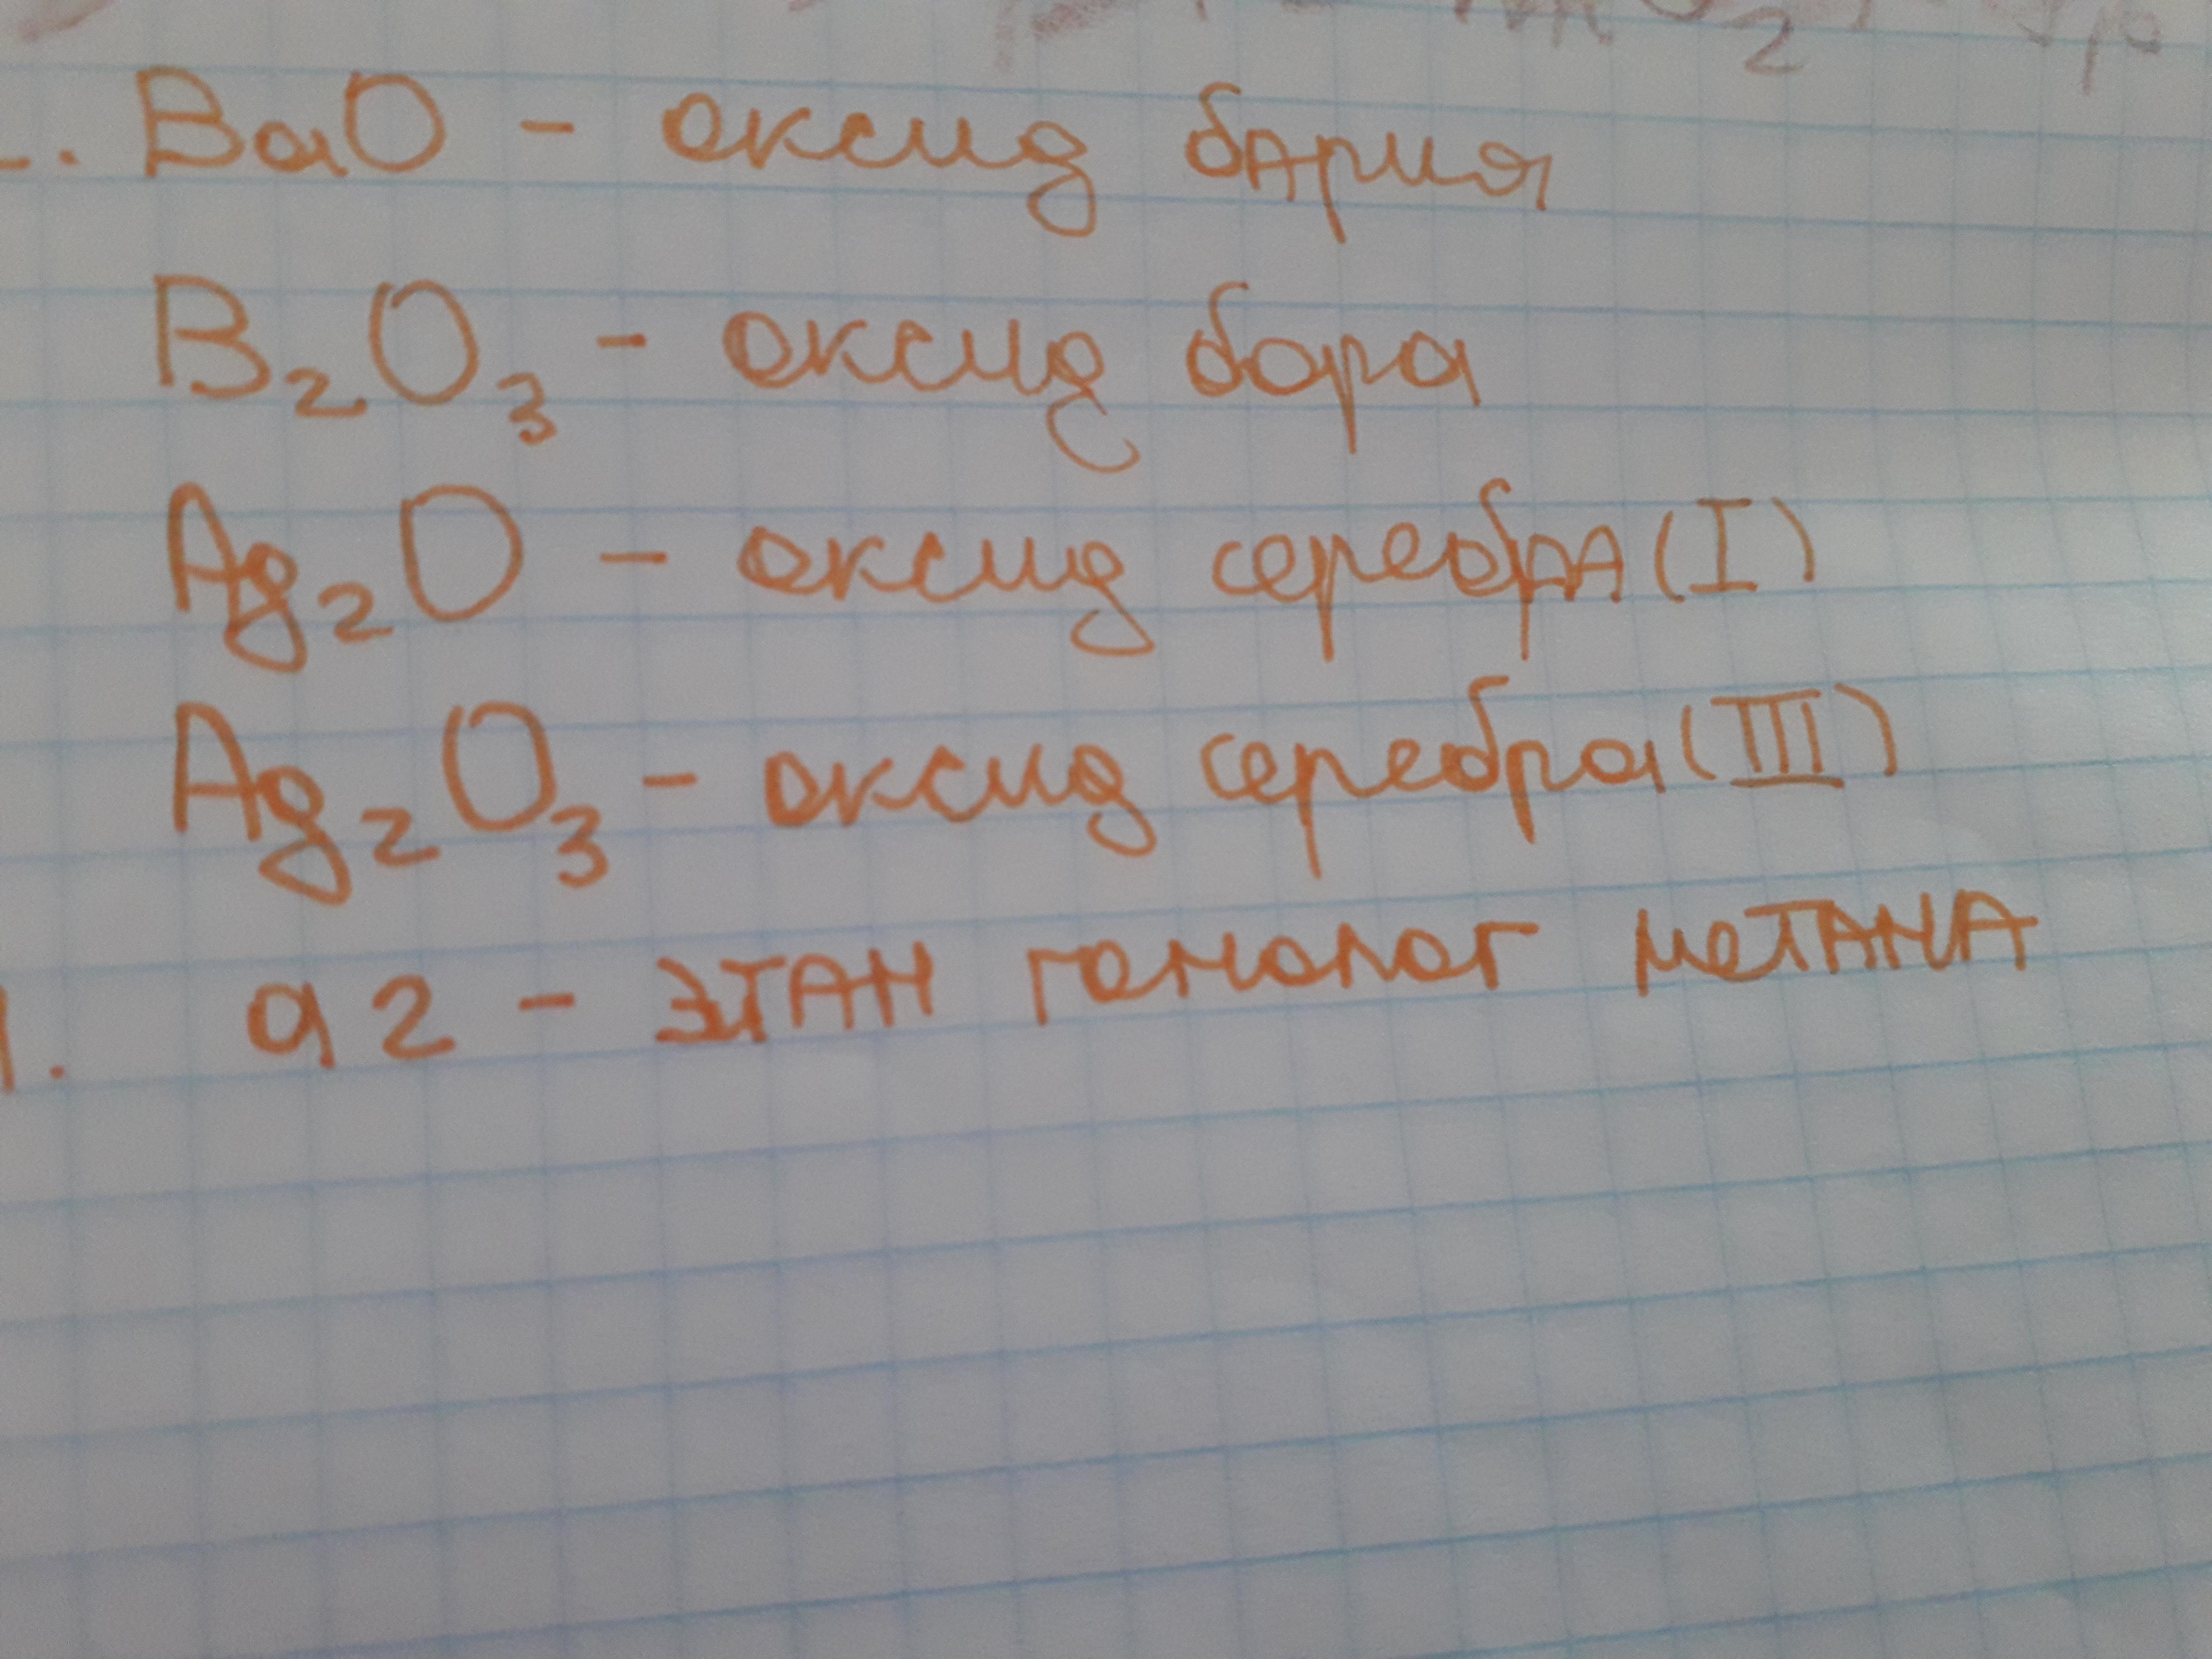 BaO - оксид бария
B₂O₃ - оксид бора
Ag₂O - оксид серебра (I)
Ag₂O₃ - оксид серебра (III)
1. a2 - этан гомолог метана